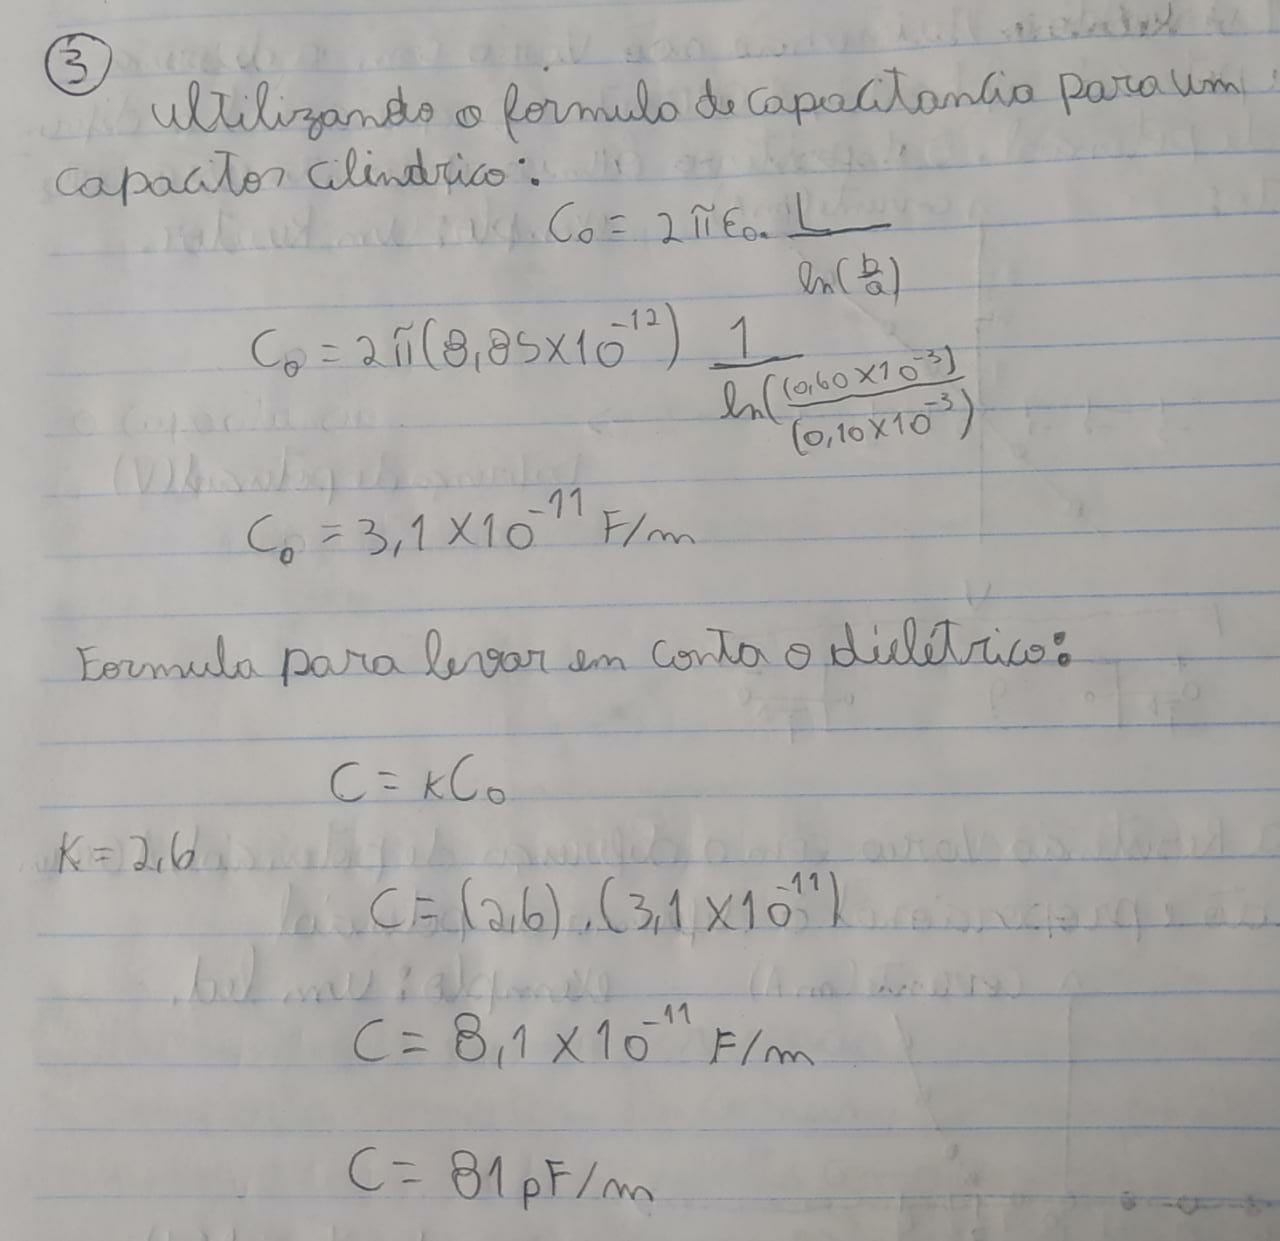 3
ultilizando a formula de capacitancia para um
capacitor cilindrico:
C₀ = 2πε₀. L / ln(b/a)
C₀ = 2π(8,85×10⁻¹²) 1 / ln((0,60×10⁻³)/(0,10×10⁻³))
C₀ = 3,1×10⁻¹¹ F/m
Formula para levar em conta o dielétrico:
C = kC₀
K = 2,6
C = (2,6).(3,1×10⁻¹¹)
C = 8,1×10⁻¹¹ F/m
C = 81pF/m